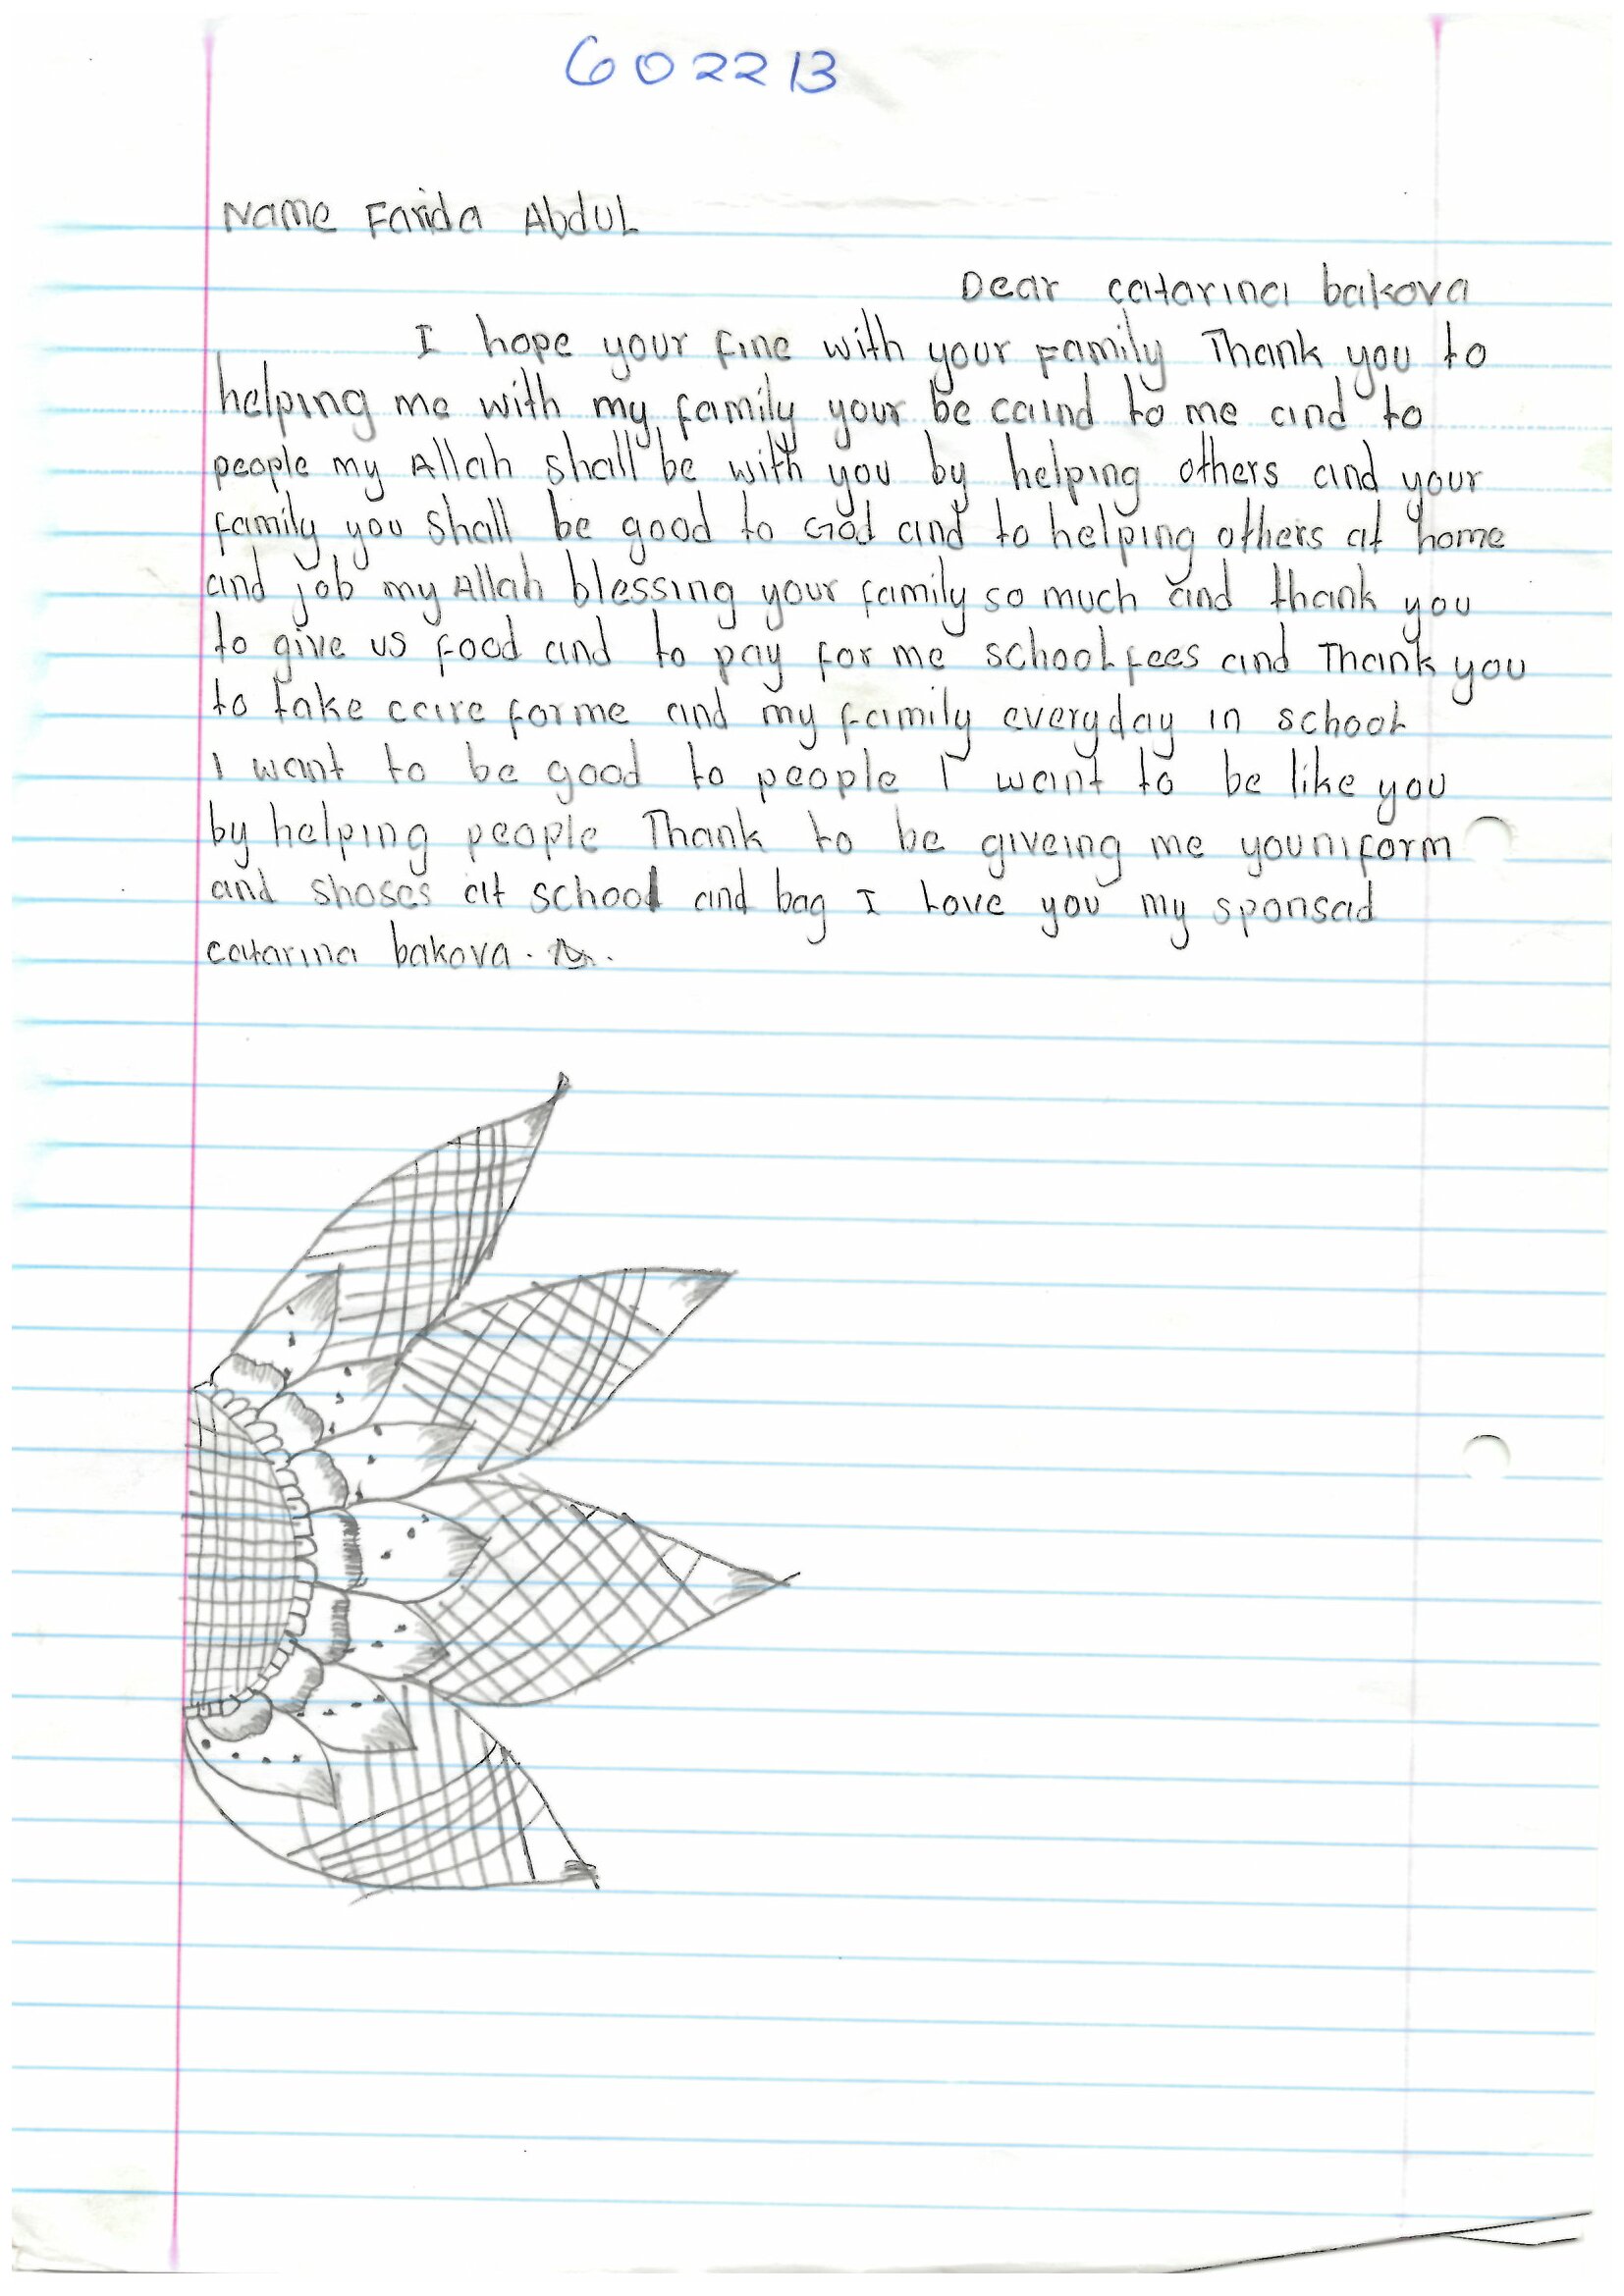 602213
Name Farida Abdul
Dear catarina bakova
I hope your fine with your Family Thank you to
helping me with my family your be caind to me and to
people my Allah shall be with you by helping others and your
family you shall be good to God and to helping others at home
and job my Allah blessing your family so much and thank you
to give us food and to pay for me school fees and Thank you
to take care for me and my family everyday in school
I want to be good to people I want to be like you
by helping people Thank to be giveing me youniform
and shoses at school and bag I Love you my sponsad
catarina bakova.